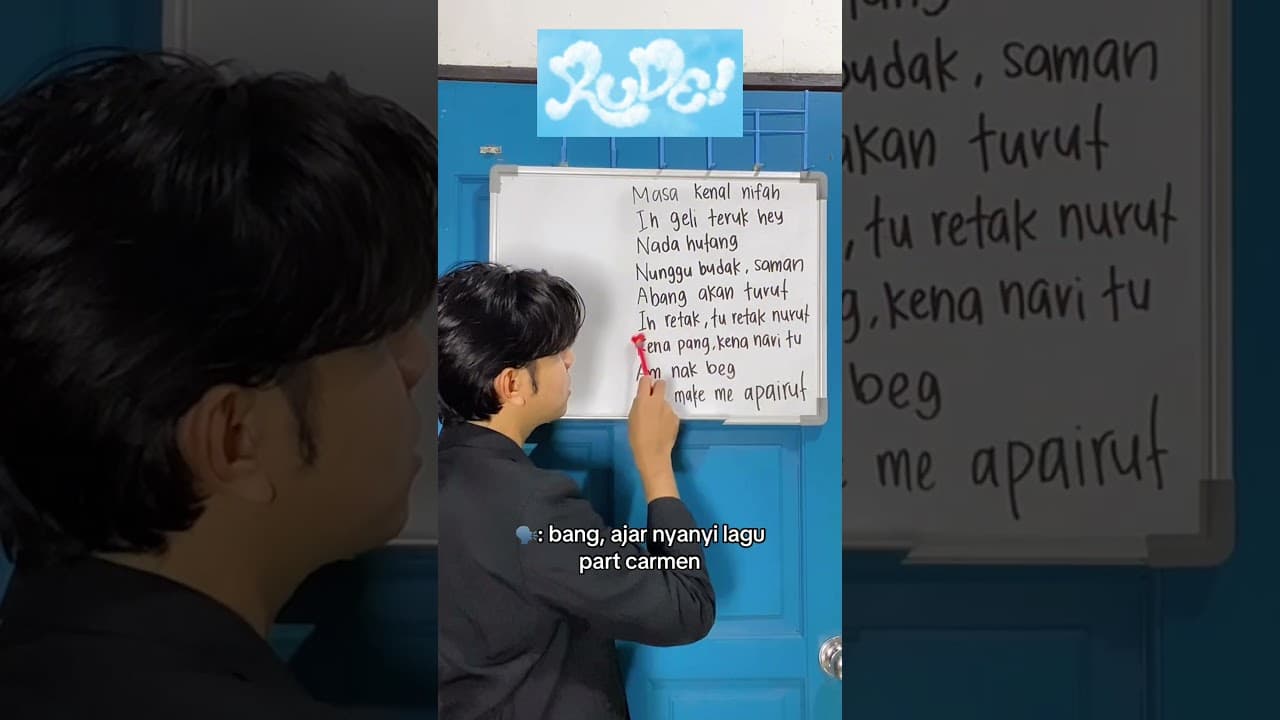 RUDE!
Masa kenal nifah
Ih geli teruk hey
Nada hutang
Nunggu budak, saman
Abang akan turut
Ih retak, tu retak nurut
kena pang, kena nari tu
Am nak beg
make me apairut
🗣️: bang, ajar nyanyi lagu
part carmen
budak, saman
akan turut
, tu retak nurut
, kena nari tu
beg
me apairut